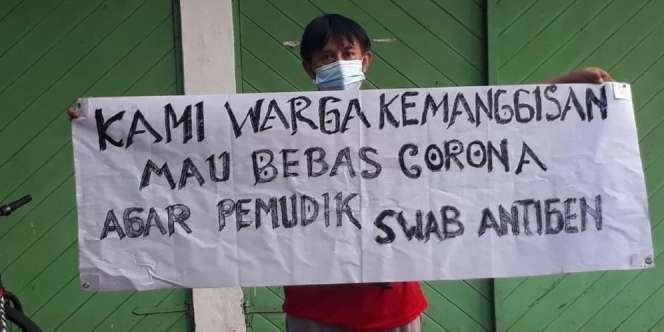 KAMI WARGA KEMANGGISAN
MAU BEBAS CORONA
AGAR PEMUDIK SWAB ANTIGEN